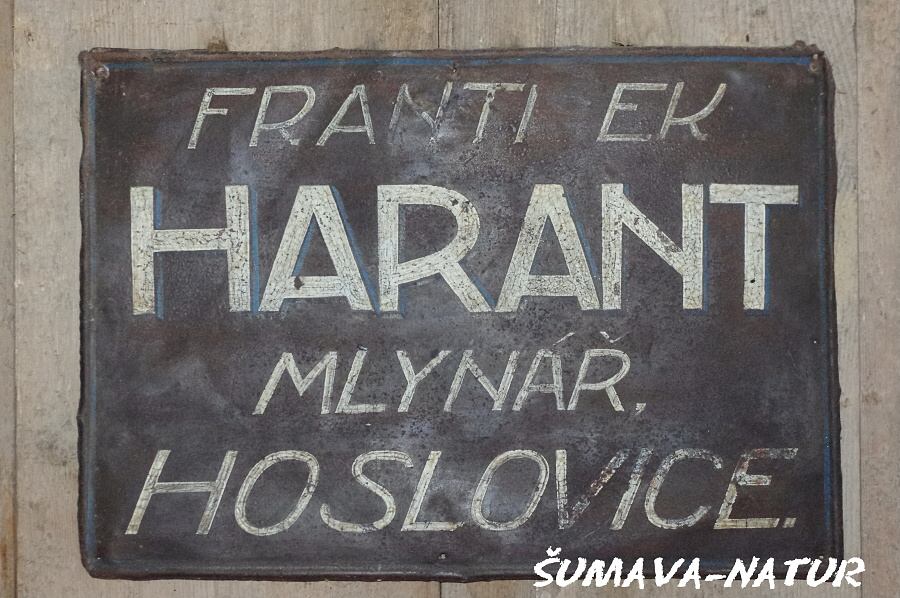 FRANTI EK
HARANT
MLYNÁŘ,
HOSLOVICE.
ŠUMAVA-NATUR